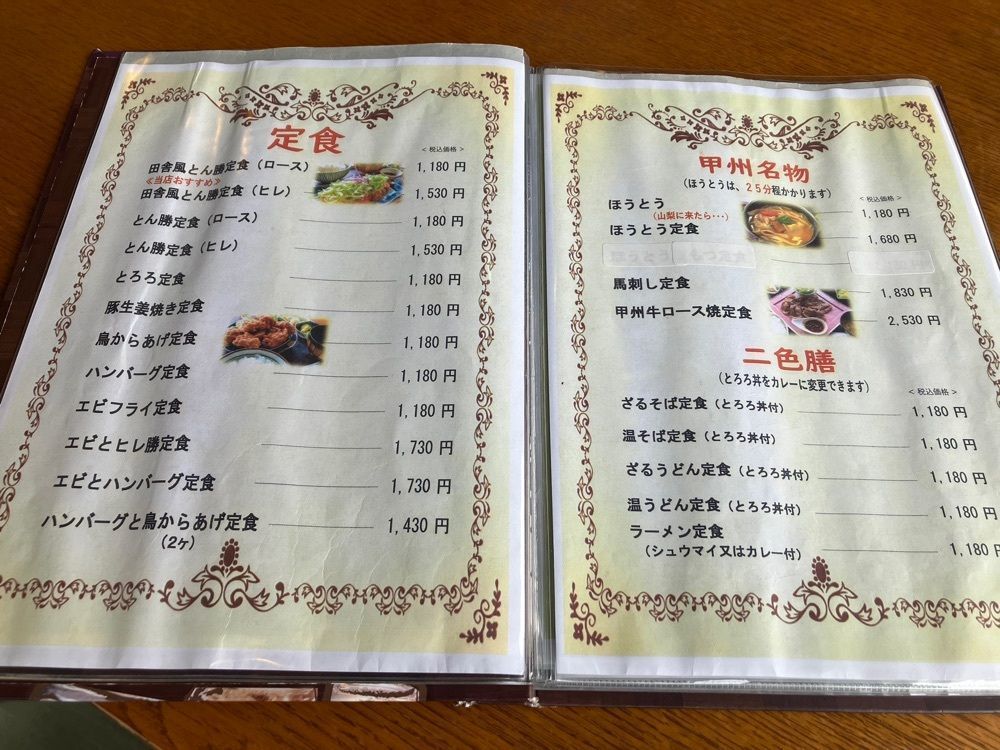 定食
< 税込価格 >
田舎風とん勝定食（ロース） 1,180 円
≪当店おすすめ≫
田舎風とん勝定食（ヒレ） 1,530 円
とん勝定食（ロース） 1,180 円
とん勝定食（ヒレ） 1,530 円
とろろ定食 1,180 円
豚生姜焼き定食 1,180 円
鳥からあげ定食 1,180 円
ハンバーグ定食 1,180 円
エビフライ定食 1,180 円
エビとヒレ勝定食 1,730 円
エビとハンバーグ定食 1,730 円
ハンバーグと鳥からあげ定食 1,430 円
（2ヶ）
甲州名物
（ほうとうは、２５分程かかります）
< 税込価格 >
ほうとう 1,180 円
（山梨に来たら･･･）
ほうとう定食 1,680 円
馬刺し定食 1,830 円
甲州牛ロース焼定食 2,530 円
二色膳
（とろろ丼をカレーに変更できます）
< 税込価格 >
ざるそば定食（とろろ丼付） 1,180 円
温そば定食（とろろ丼付） 1,180 円
ざるうどん定食（とろろ丼付） 1,180 円
温うどん定食（とろろ丼付） 1,180 円
ラーメン定食
（シュウマイ又はカレー付） 1,180 円